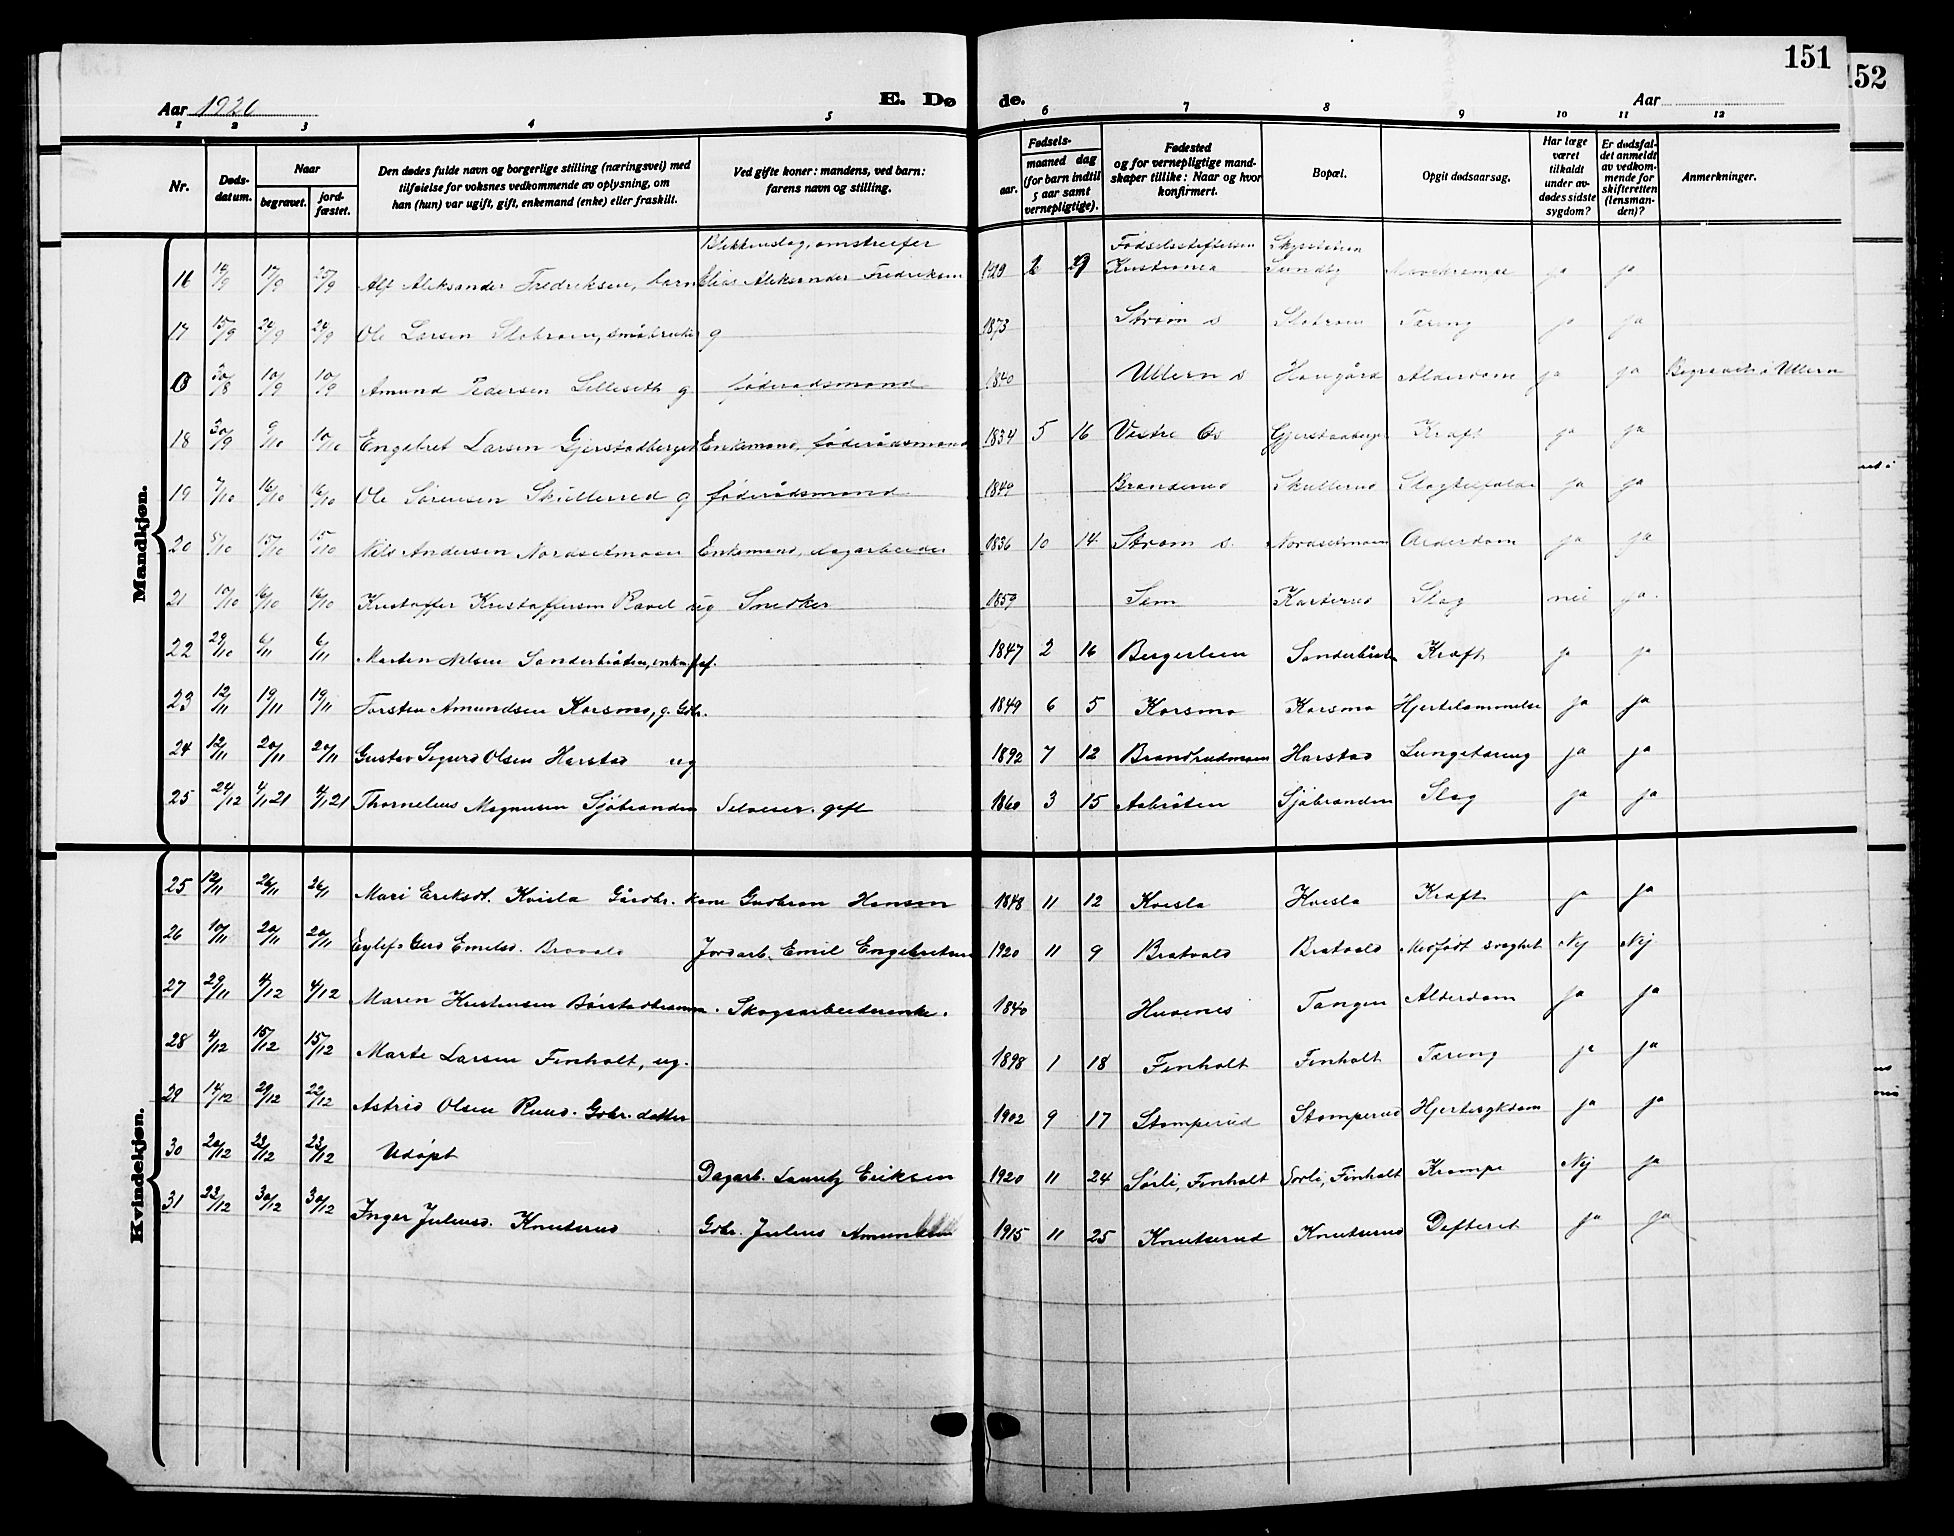 151
152
Aar 1920
E. Dø
de.
Aar
1 2 3 4 5 6 7 8 9 10 11 12
Nr.
Døds-
datum.
Naar
begravet.
jord-
fæstet.
Den dødes fulde navn og borgerlige stilling (næringsvei) med
tilføielse for voksnes vedkommende av oplysning, om
han (hun) var ugift, gift, enkemand (enke) eller fraskilt.
Ved gifte koner: mandens, ved barn:
farens navn og stilling.
Fødsels-
aar.
maaned dag
(for barn indtil
5 aar samt
vernepligtige).
Fødested
og for vernepligtige mand-
skaper tillike: Naar og hvor
konfirmert.
Bopæl.
Opgit dødsaarsag.
Har læge
været
tilkaldt
under av-
dødes sidste
sygdom?
Er dødsfal-
det anmeldt
av vedkom-
mende for
skifteretten
(lensman-
den)?
Anmerkninger.
Mandkjøn.
Blikkenslag, omstreifer Fødselsstiftelsen
16 14/9 17/9 25/9 Alf Aleksander Fredriksen, barn Elias Aleksander Fredriksen 1919 Kristiania Lundby Mavekrampe ja ja
17 15/9 24/9 24/9 Ole Larsen Slobraaen, småbruker g 1873 Strøm s Tæring ja ja
30/8 10/9 10/9 Amund Pedersen Lilleseth g føderådsmand 1840 Ullern s Haugård Alderdom ja ja Begravet i Ullern
18 30/9 9/10 10/10 Engebret Larsen Gjerstadberget Enkemand, føderådsmand 1834 5 16 Vestre Os Gjerstadberget Kræft ja ja
19 7/10 16/10 16/10 Ole Sørensen Skullerud g føderådsmand 1849 Branderud Skullerud Slagtilfælde ja ja
20 8/10 15/10 15/10 Nils Andersen Nordsetmoen Enkemand, dagarbeider 1836 10 14 Strøm s. Nordsetmoen Alderdom ja ja
21 10/10 16/10 16/10 Kristoffer Kristoffersen Ravel ug Snedker 1859 Slag nei ja
22 29/10 6/11 6/11 Marten Nilsen Sanderbråten, enkem. 1847 2 16 Sanderbråten Kræft ja ja
23 12/11 19/11 19/11 Torsten Amundsen Korsmo, g. Gbr. 1849 6 5 Korsmo Korsmo Hjertelammelse ja ja
24 12/11 20/11 20/11 Gustav Sigurd Olsen Harstad ug 1892 7 12 Brandrudmoen Harstad Lungetæring ja ja
25 24/12 4/1 21 4/1 21 Thornelius Magnusen Sjøbranden Selveier. gift 1860 3 15 Aabråten Sjøbranden Slag ja ja
Kvindekjøn.
25 12/11 26/11 26/11 Mari Eriksdt. Kvisla Gårdbr. kone Gudbran Hansen 1848 11 12 Kvisla Kvisla Kræft ja ja
26 10/11 20/11 20/11 Gerd Emilsd. Bravald Jordarb. Emil Engebretsen 1920 11 9 Bratvald Bratvald Medfødt svaghet Nej Nej
27 29/11 4/12 4/12 Maren Kristensen Børstadbraaten. Skogsarbeiderenke. 1840 Huvenes Tangen Alderdom ja ja
28 4/12 15/12 15/12 Marte Larsen Finholt, ug. 1898 1 18 Finholt Finholt Tæring ja ja
29 14/12 22/12 Astrid Olsen Ruud. Gbr. datter 1902 9 17 Stomperud Stomperud Hjertesykdom ja ja
30 20/12 23/12 23/12 Udøpt Dagarb. Lauritz Eriksen 1920 11 24 Sørli, Finholt Sørli, Finholt Krampe Nej ja
31 22/12 30/12 30/12 Inger Juliusd. Knutserud Gbr. Julius Amundsen 1915 11 25 Knutserud Knutserud Difterit ja ja